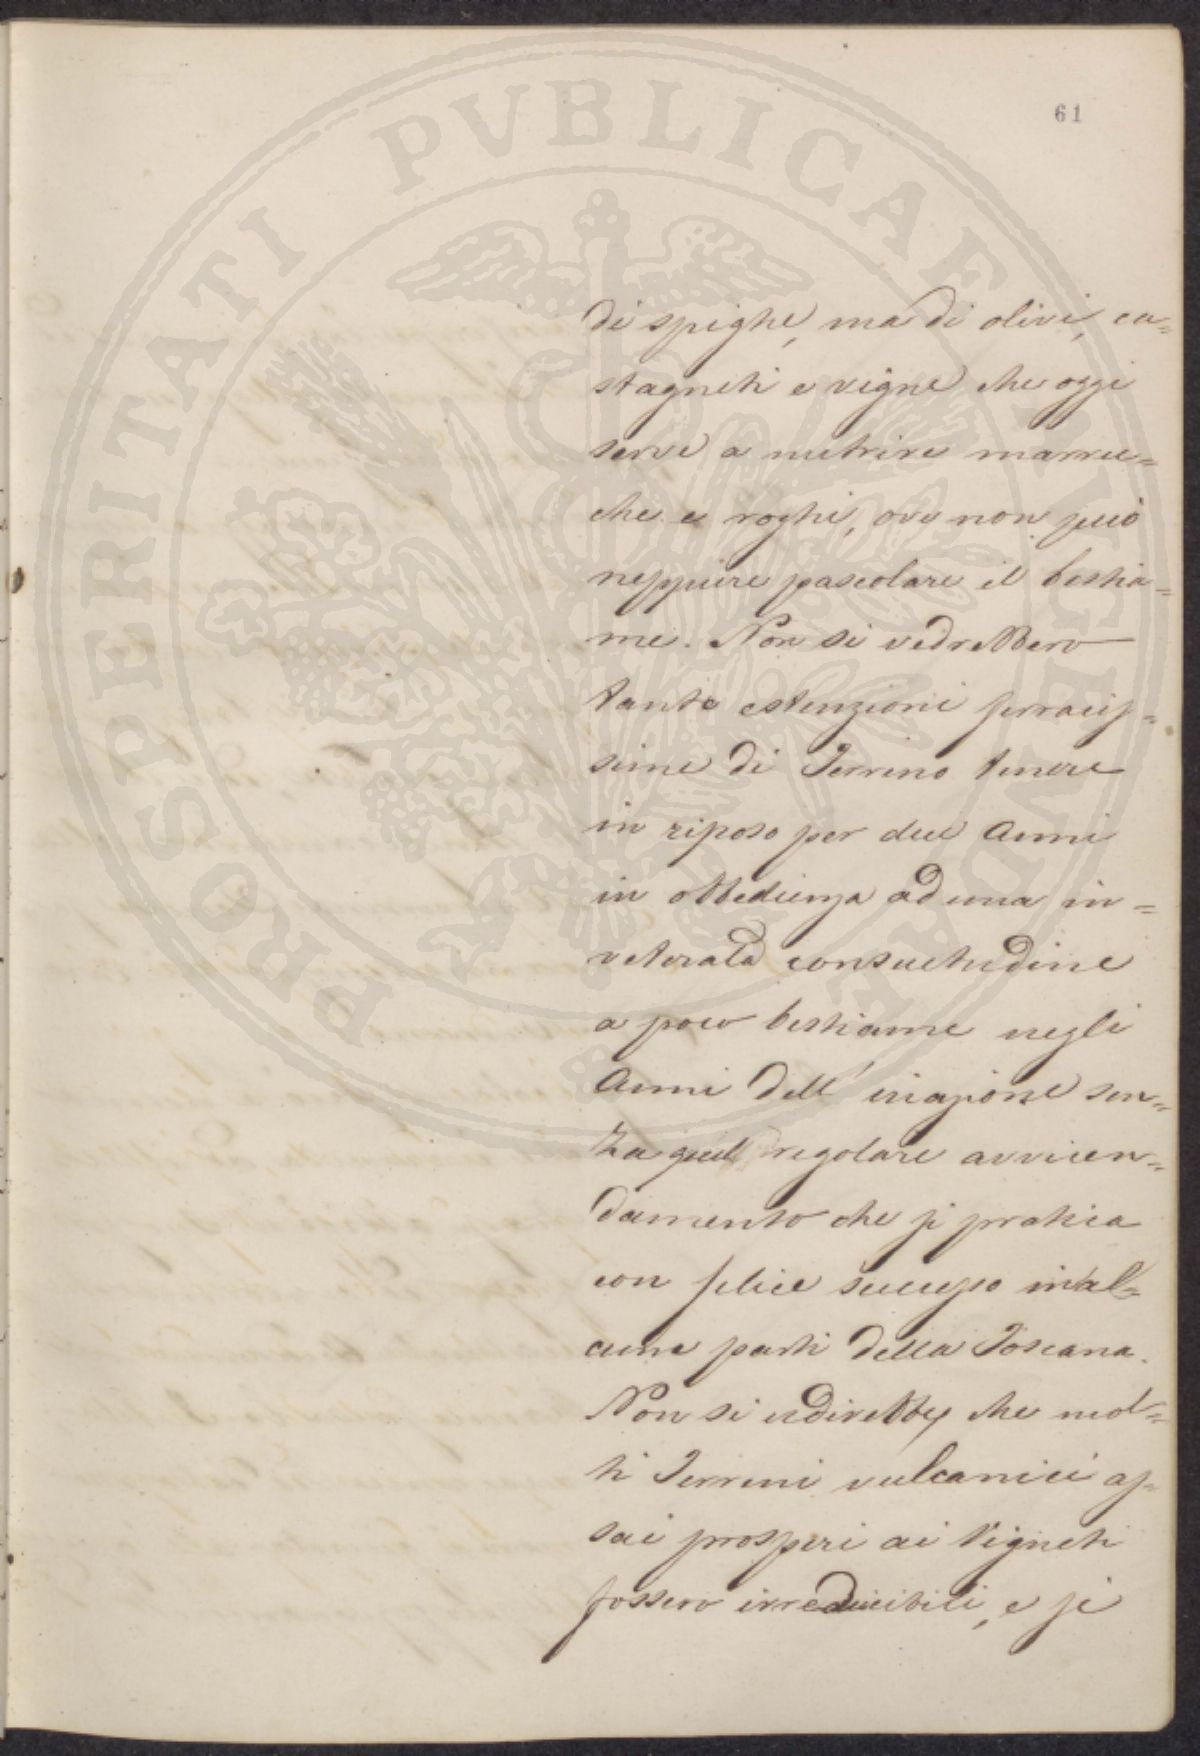 61
PROSPERITATI PVBLICAE AVGENDAE
di spighe, ma di olivi, ca=
stagneti e vigne che oggi
serve a nutrire marru=
che e roghi, ove non può
neppure pascolare il bestia=
me. Non si vedrebbero
tante estenzioni feracis=
sime di Terreno tenere
in riposo per due Anni
in obbedienza ad una in=
veterata consuetudine
a poco bestiame negli
Anni dell' inazione sen=
za quel regolare avvicen=
damento che si pratica
con felice successo in al=
cune parti della Toscana.
Non si udirebbe che mol=
ti Terreni vulcanici as=
sai prosperi ai Vigneti
fossero irreducibili, e si